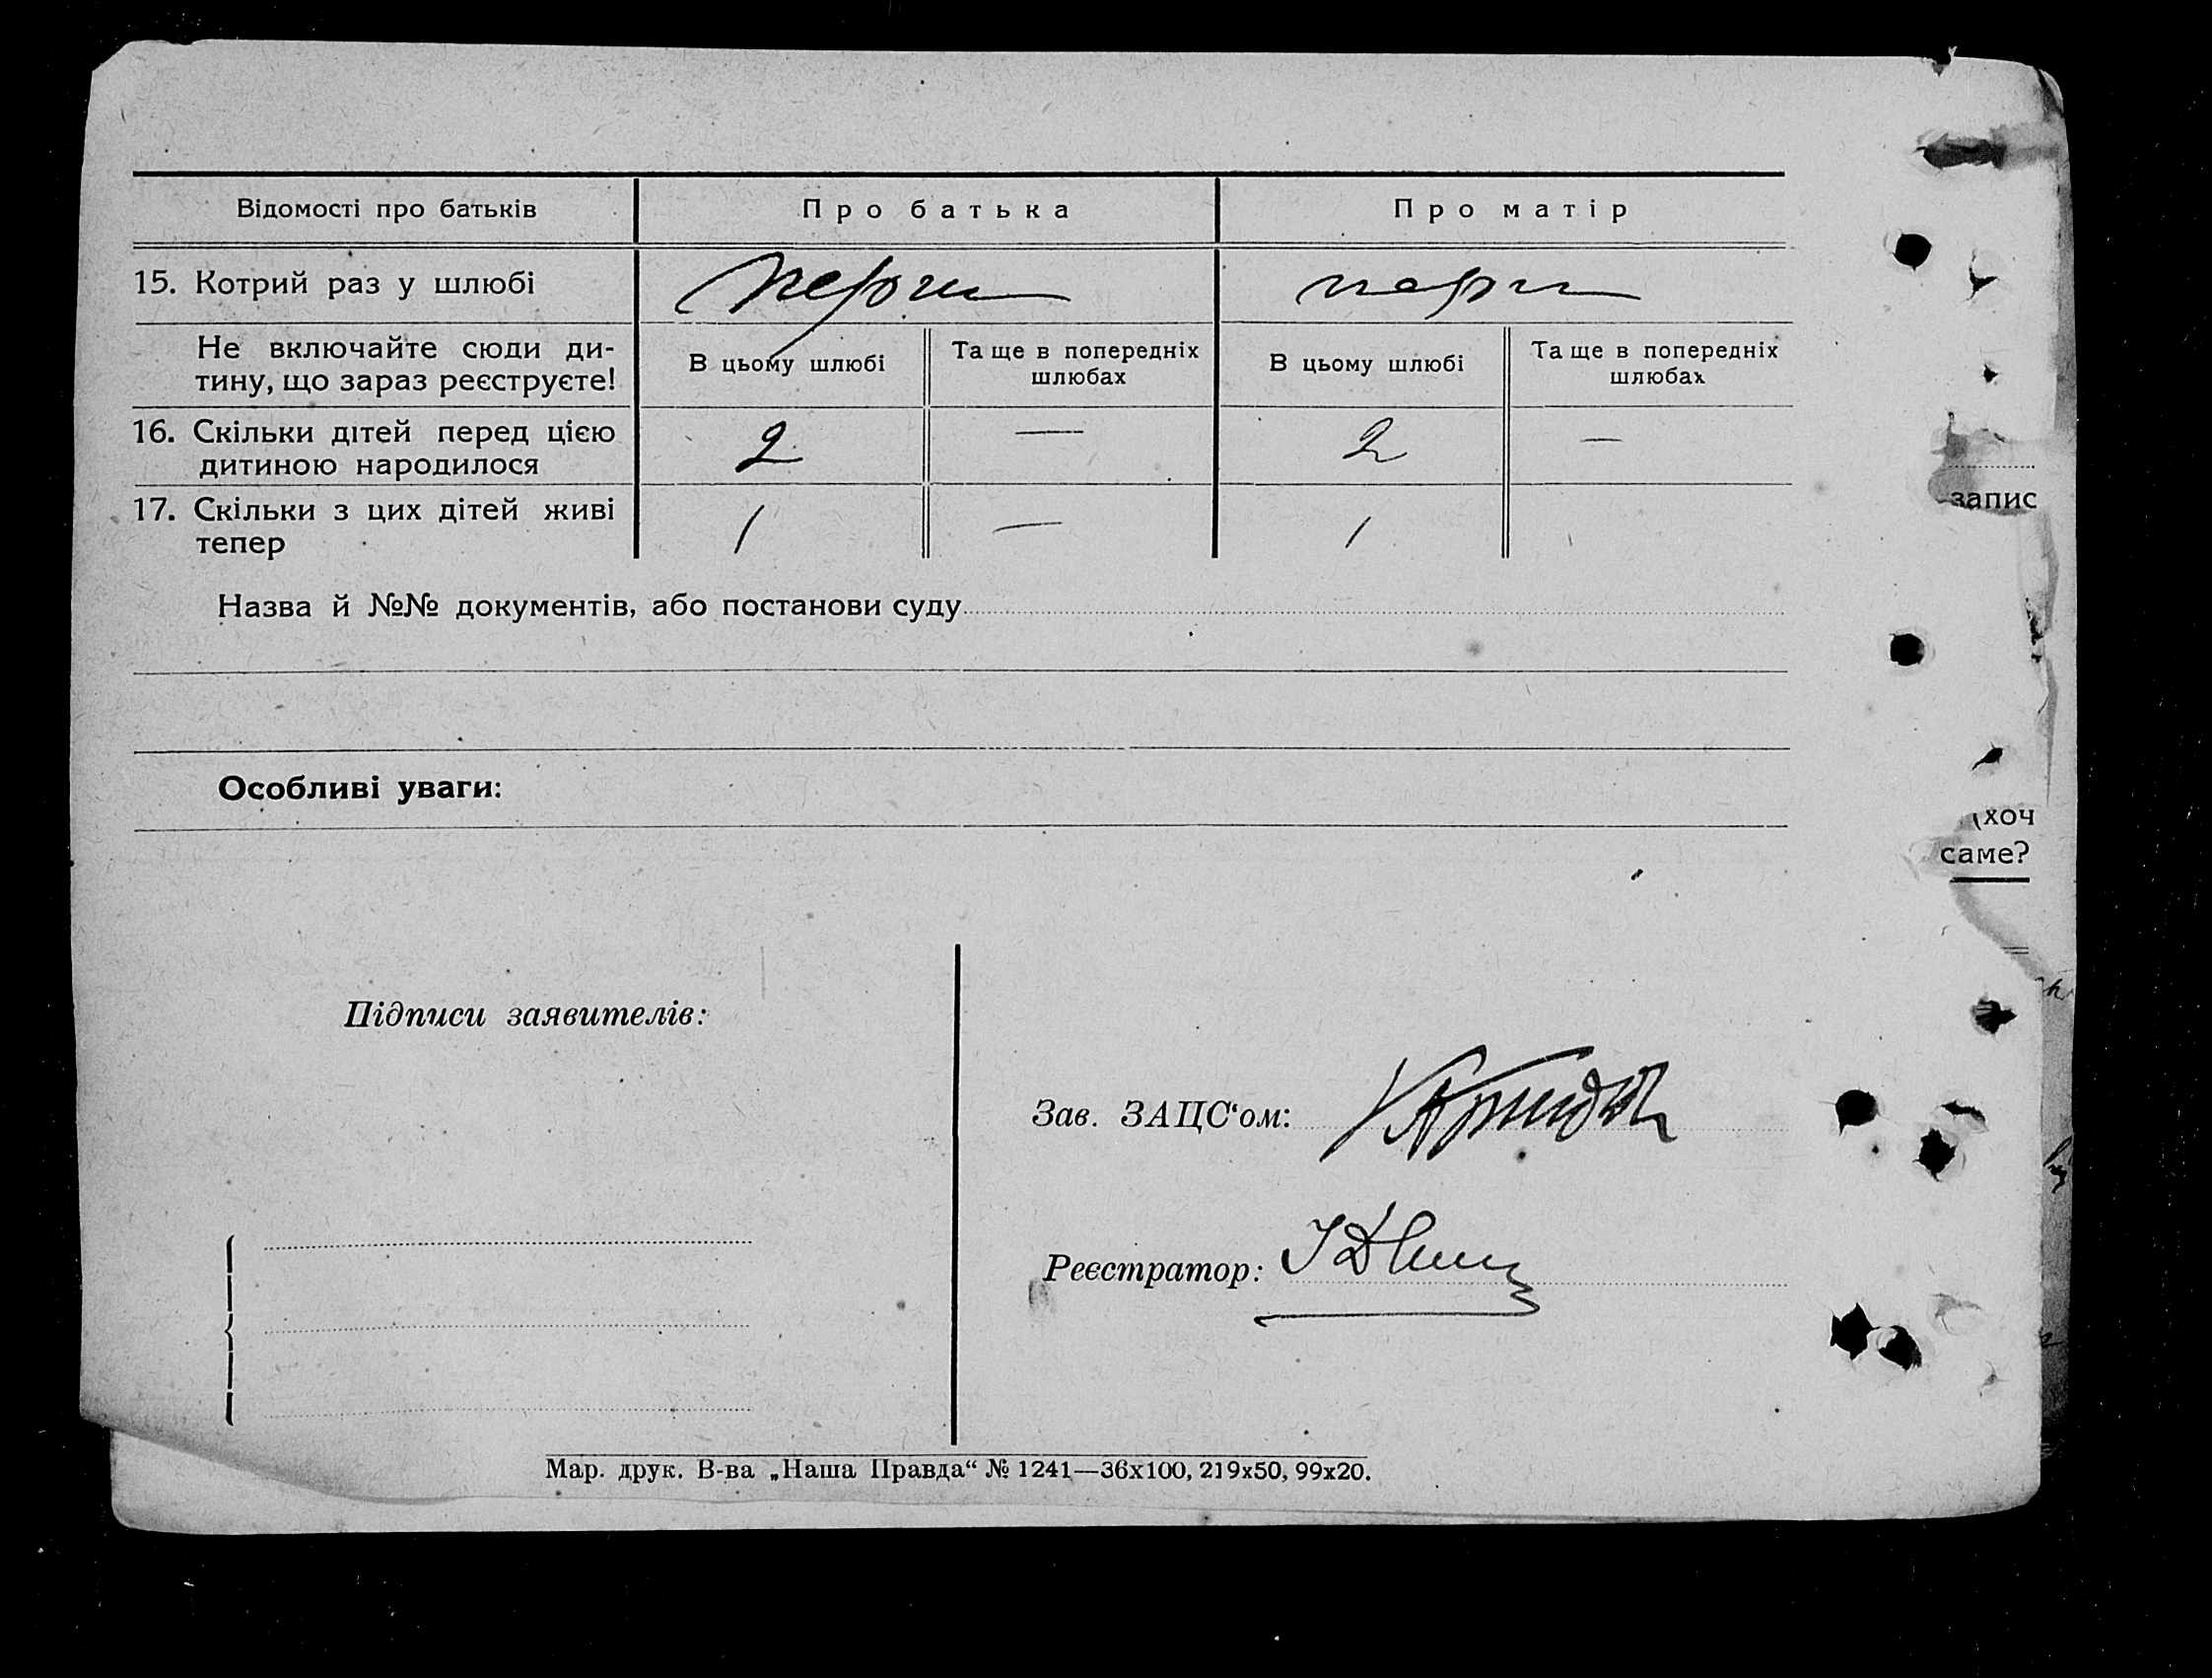 Відомості про батьків Про батька Про матір
15. Котрий раз у шлюбі перши перш
Не включайте сюди ди-
тину, що зараз реєструєте!
В цьому шлюбі Та ще в попередніх
шлюбах
В цьому шлюбі Та ще в попередніх
шлюбах
16. Скільки дітей перед цією
дитиною народилося
2 — 2 —
17. Скільки з цих дітей живі
тепер
1 — 1
запис
Назва й №№ документів, або постанови суду
Особливі уваги:
(хоч
саме?
Підписи заявителів:
Зав. ЗАЦС‘ом:
Реєстратор:
Мар. друк. В-ва „Наша Правда“ № 1241—36х100, 219х50, 99х20.